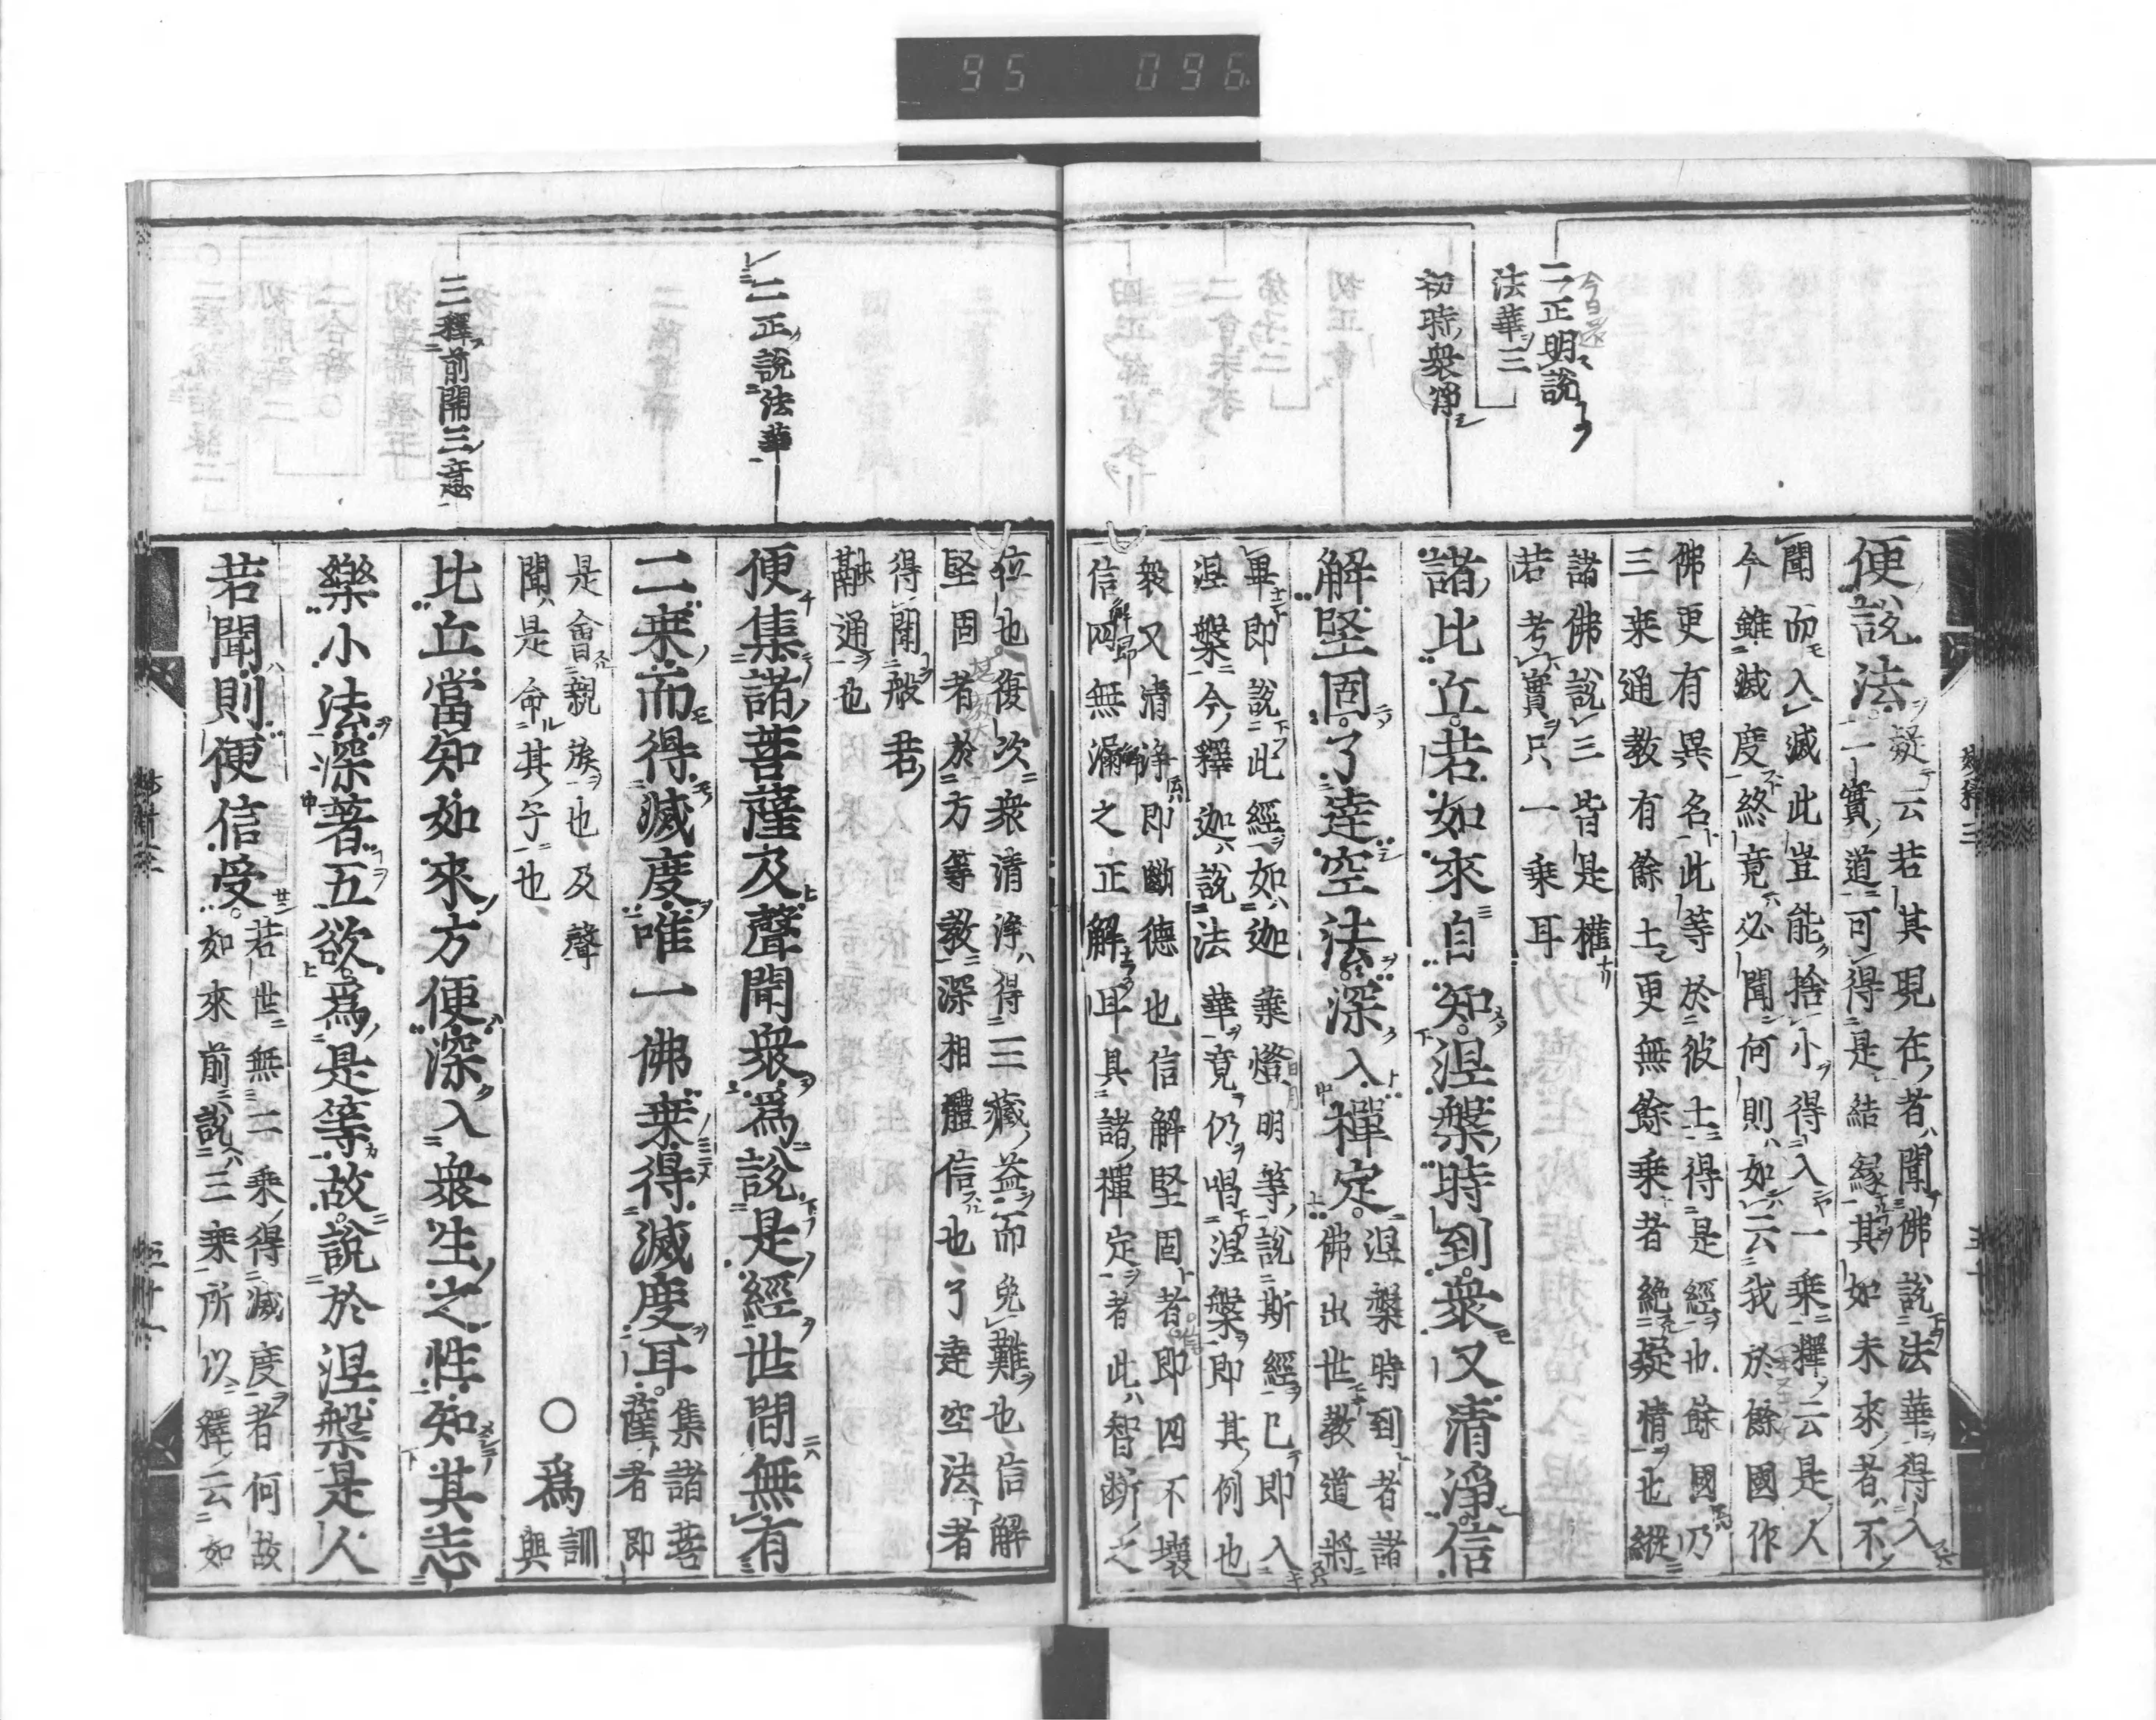 95 096
二正明說
法華三
初時衆淨
便說法疑云若其現在者聞佛說法華得入
一實道可得是結緣其如未來者不
聞而入滅此豈能捨小得入一乘釋云是人
今雖滅度終竟必聞何則如云我於餘國作
佛更有異名此等於彼土得是經也餘國乃
三乘通教有餘土更無餘乘者絶疑情也縱
諸佛說三皆是權
若考實只一乘耳
諸比丘若如來自知涅槃時到衆又清淨信
解堅固了達空法深入禪定
涅槃時到者諸
佛出世教道將
畢即說此經如迦葉燈明等說斯經已即入
涅槃今釋迦說法華竟仍唱涅槃即其例也
衆又清淨即斷德也信解堅固者即四不壞
信四無漏之正解耳具諸禪定者此智斷之
二正說法華
三釋前開三意
位也復次衆清淨得三藏益而免難也信解
堅固者於方等教深相體信也了達空法者
得聞般若
融通也
便集諸菩薩及聲聞衆爲說是經世間無有
二乘而得滅度唯一佛乘得滅度耳
集諸菩
薩者即
是會親族也及聲
聞是命其子也
○爲
訓
與
比丘當知如來方便深入衆生之性知其志
樂小法深著五欲爲是等故說於涅槃是人
若聞則便信受
若世無二乘得滅度者何故
如來前說三乘所以釋云如